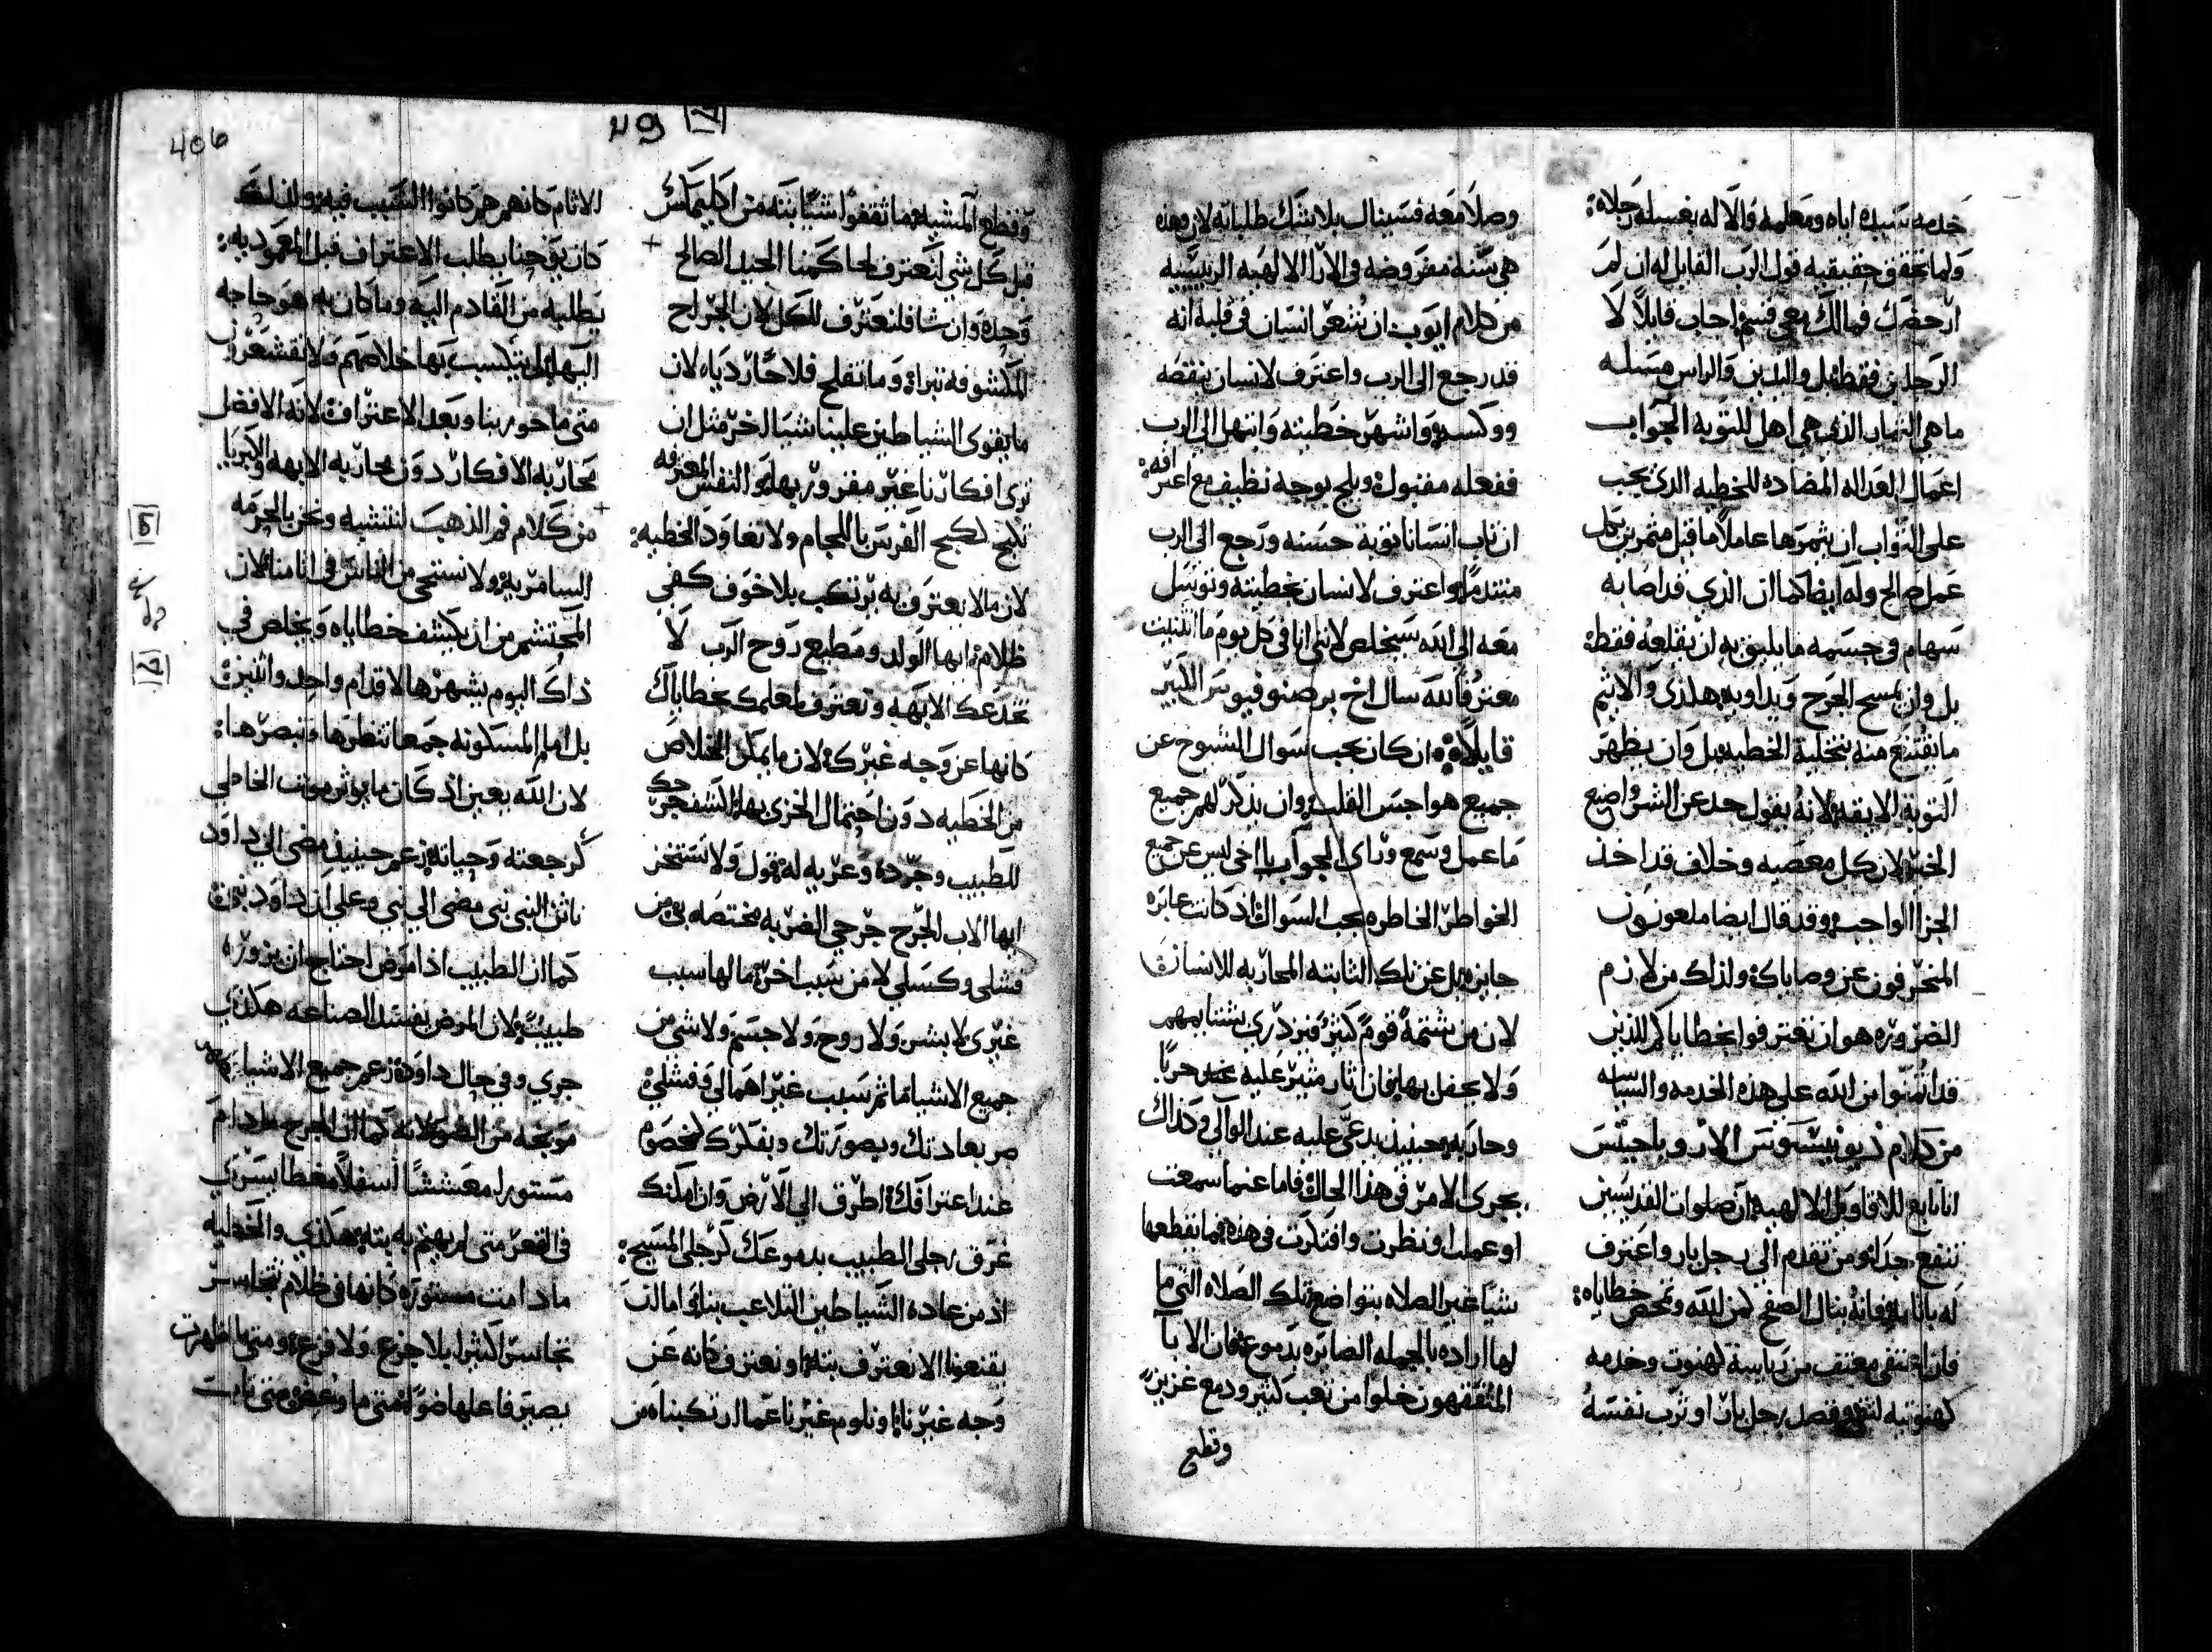 خدمه سيده اباه ومعلمه والاله بغسله رجلاه:
ولما تحقق حقيقيه قول الرب القايل له ان لم
ارحضك فمالك معي قسم اجاب قايلاً لا
الرجلين فقط بل واليدين والراس مسله
ما هي الثمار الذي هي اهل للتوبه الجواب
اعمال العداله المضاده للخطيه الذي يجب
على التواب ان يثمرها عاملاً ما قيل مثمرين بكل
عمل صالح وله ايضا كما ان الذي قد اصابه
سهام في جسمه ما يليق به ان يقلعه فقط
بل وان يمسح الجرح ويداويه هكذي والاثيم
ما يقتنع منه بتخلية الخطيه بل وان يظهر
التوبة الايقه لانه يقول حد عن الشر واصنع
الخير لان كل معصيه وخلاف قد اخذ
الجزا الواجب وقد قال ايضا ملعونون
المنحرفون عن وصاياك ولذلك من لازم
الضروره هو ان تعترفوا بخطاياكم للذين
قد ائتمنوا من الله على هذه الخدمه والسياسه
من كلام ديونيسيوس
انا تابع للاقاويل الالهيه ان صلوات القديسين
تنفع جدا ومن تقدم الى رجل بار واعترف
له باثامه فانه ينال الصفح من الله وتمحص خطاياه:
فان
كهنوتيه
وصلا معه فسينال بلا شك طلباته لان هذه
هي سنه مفروضه في الارا الالهيه الربيسيه
من كلام ايوب ان شعر انسان في قلبه انه
قد رجع الى الرب واعترف لانسان بنقصه
ووكسه واشهر خطيته وابتهل الى الرب
ففعله مقبول ويلج بوجه نظيف مع اعترافه:
ان تاب انسانا توبة حسنه ورجع الى الرب
متندماً واعترف لانسان بخطيته وتوسل
معه الى الله سيخلص لانني انا في كل يوم ما انثنيت
معترفاً لله سال اخ برصنوفيوس الكبير
قايلاً ان كان يجب سوال الشيوخ عن
جميع هواجس القلب وان يذكر لهم جميع
ما عمل وسمع وراى الجواب يا اخي ليس عن جميع
الخواطر الخاطره يجب السوال اذ كانت عابره
جايزه بل عن تلك الثابته المحاربه للانسان
لان من شتمه قوم كثير فنزدري بشتايمهم
ولا يحفل بها فان اثار مثير عليه حربا
وحاربه حينيذ يدعي عليه عند الوالي وكذاك
يجري الامر في هذا الحال فاما عنما سمعت
او عملت او نظرت وافتكرت في هذه فما تقطعها
شيا غير الصلاه بتواضع تلك الصلاه التي ما
لها اراده بالجمله الصايره بدموع فان الابا
المتفقهون خلوا من تعب كثير ودمع غزير
وقطع
406
وقطع المشيه فما ثقفوا شيًا بته من اكليماكس
قبل كل شي لنعترف لحاكمنا الجيد الصالح
وحده وان شا فلنعترف للكل لان الجراح
المكشوفه تبراه وما تفلح فلاحًا رديا لان
ما يقوى الشياطين علينا شيا اخر مثل ان
نرى افكارنا غير مقرور بها والنفس المعترفه
تكبح لكبح الفرس باللجام ولا تعاود الخطيه:
لان ما لا يعترف به يرتكب بلا خوف كفي
ظلام ايها الولد ومطيع روح الرب لا
تخدعك الابهه وتعترف لمعلمك بخطاياك
كانها عن وجه غيرك لان ما يمكن الخلاص
من الخطيه دون احتمال الخزي بها اكشف جرحك
للطبيب وجرده وعريه له قول ولا تستخز
ايها الاب الجرح جرحي الضربه مختصه بي من
فشلي وكسلي لا من سبب اخر ما لها سبب
غيري لا بشر ولا روح ولا جسم ولا شي من
جميع الاشيا ما ثم سبب غير اهمالي وفشلي
صر بعادتك وبصورتك وبفكرك لخصوم
عند اعترافك اطرق الى الارض وان امكنك
غرق رجلي الطبيب بدموعك كرجلي المسيح:
اذ من عادة الشياطين التلاعب بنا اما ان
يقنعونا الا نعترف بته او نعترف كانه عن
وجه غيرنا او نلوم غيرنا عما ارتكبناه من
الاثام كانهم هم كانوا السبب فيه ولذلك
كان يوحنا يطلب الاعتراف قبل المعموديه:
يطلبه من القادم اليه وما كان به هو حاجه
اليها بل ليكسب بها خلاصهم ولا تقشعرن
متى ما حوربنا وبعد الاعتراف لانه الافضل
محاربه الافكار دون محاربه الابهه والكبريا
من كلام فم الذهب لنتشبه ونحن بالجرمه
السامريه ولا نستحي من الناس في اثامنا لان
المحتشم من ان يكشف خطاياه ويخلص في
ذاك اليوم يشهرها لا قدام واحد واثنين
بل امام المسكونه جمعا تنظرها وتبصرها:
لان الله بعين اذ كان ما يوثر موت الخاطي
كرجعته وحياته زعم حينيذ مضى الي داود
ناثن النبي نبي مضى الي نبي وعلى ان داود نبي
كما ان الطبيب اذا مرض احتاج ان يزوره
طبيبٌ لان المرض يفسد الصناعه هكذي
جرى وفي حال داود زعم جميع الاشيا
موبخه من الضو لانه كما ان الجرح ما دام
مستورا معششاً اسفلاً مغطا يسري
في القعر متى لم يهتم به بته هكذي والخطيه
ما دامت مستوره كانها في ظلام تتجاسر
تجاسرا كثيرا بلا جزع ولا فزع ومتى ما اظهرت
يصير فاعلها ضوًا متى ما